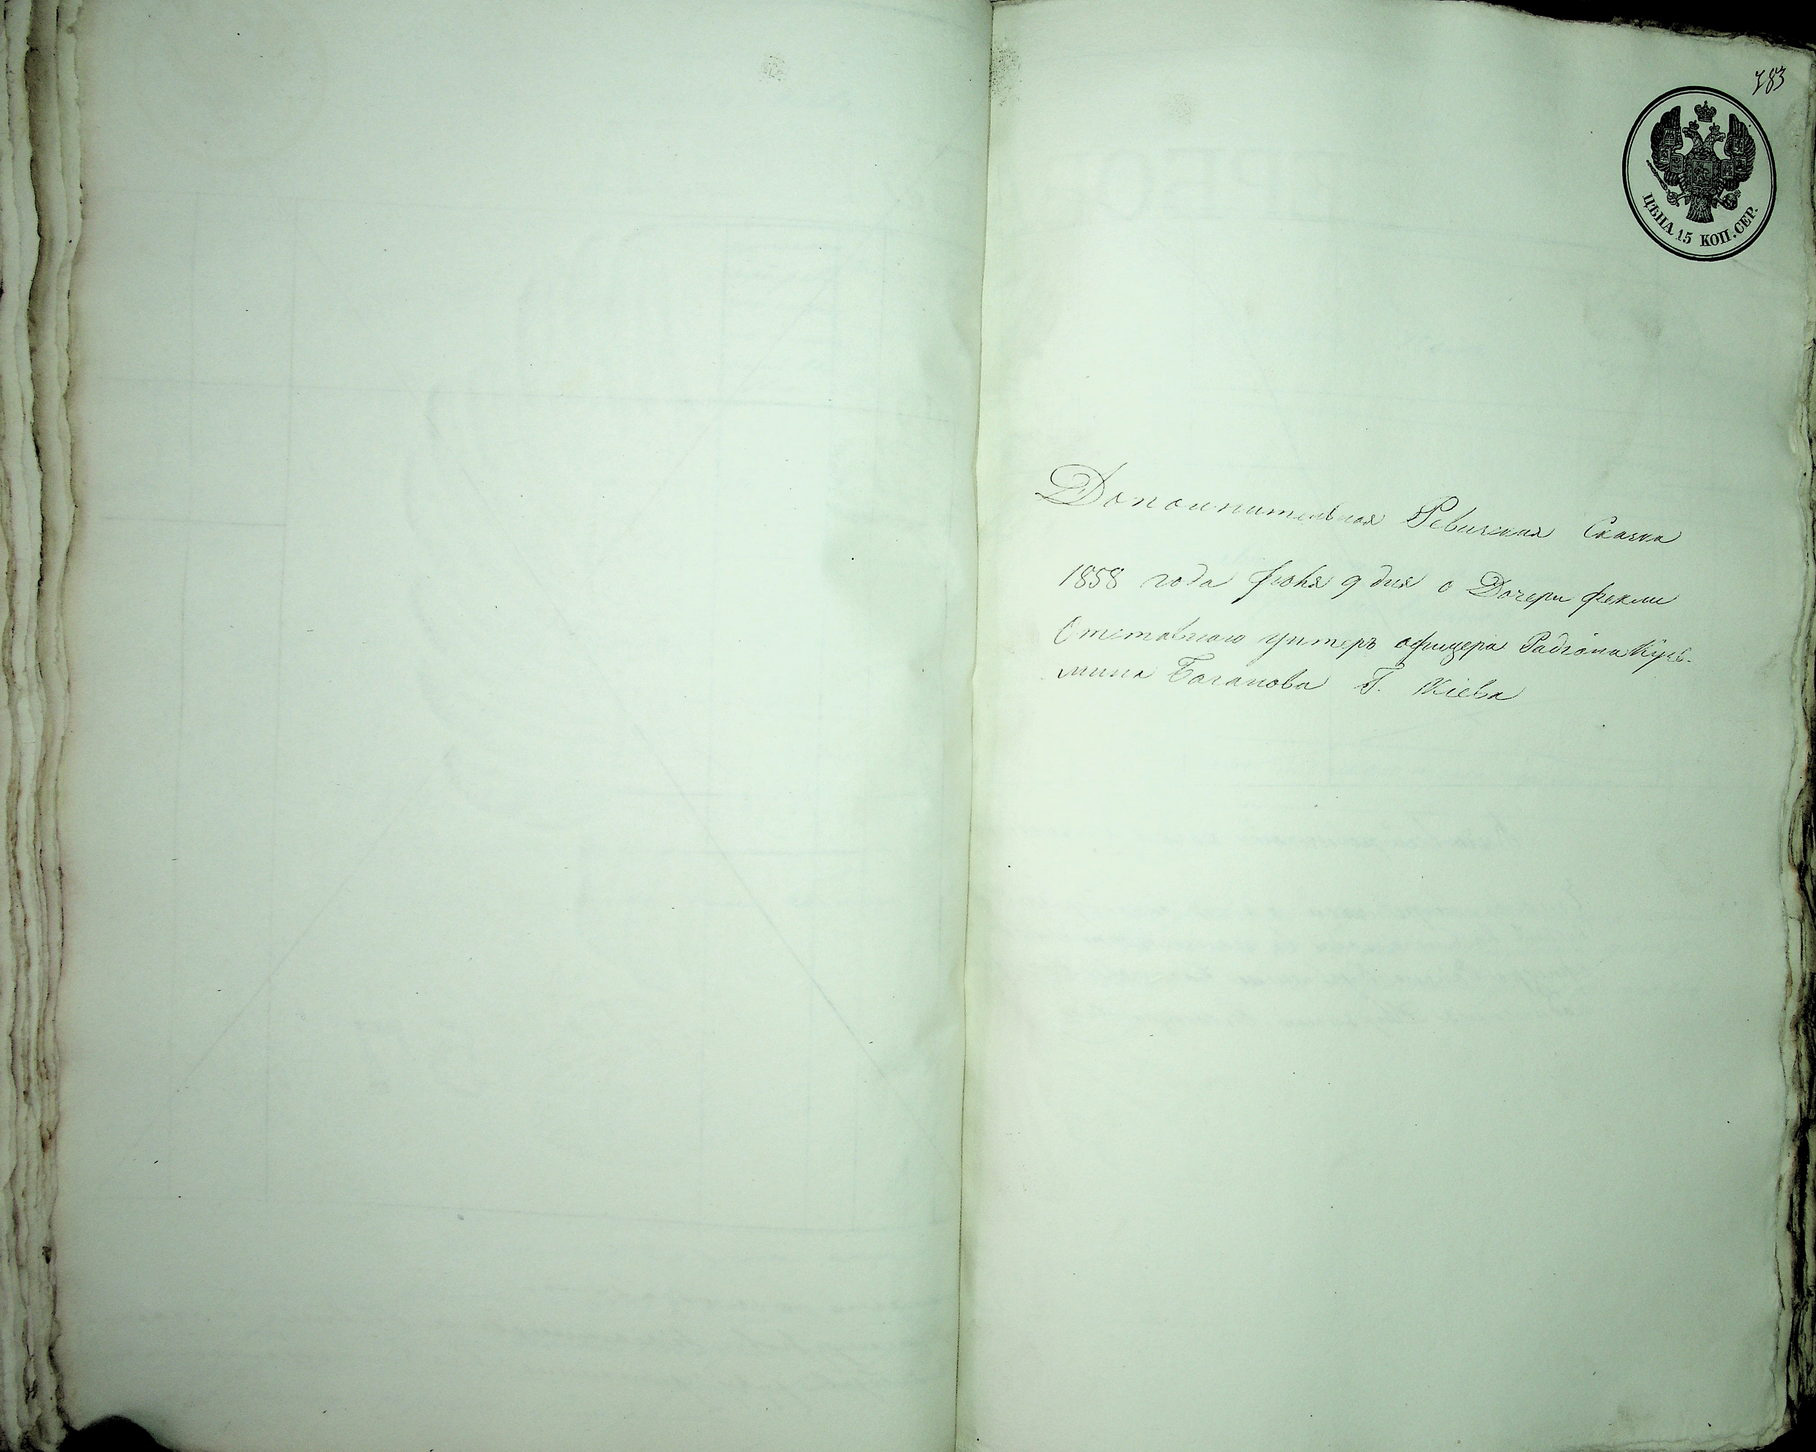 383
ЦѢНА 15 КОП. СЕР.
Дополнительная Ревизкая Сказка
1858 года Июня 9 дня о Дочери Фекли
Отставнаго унтеръ офицера Радіона Кузь-
мина Баганова Г. Кіева